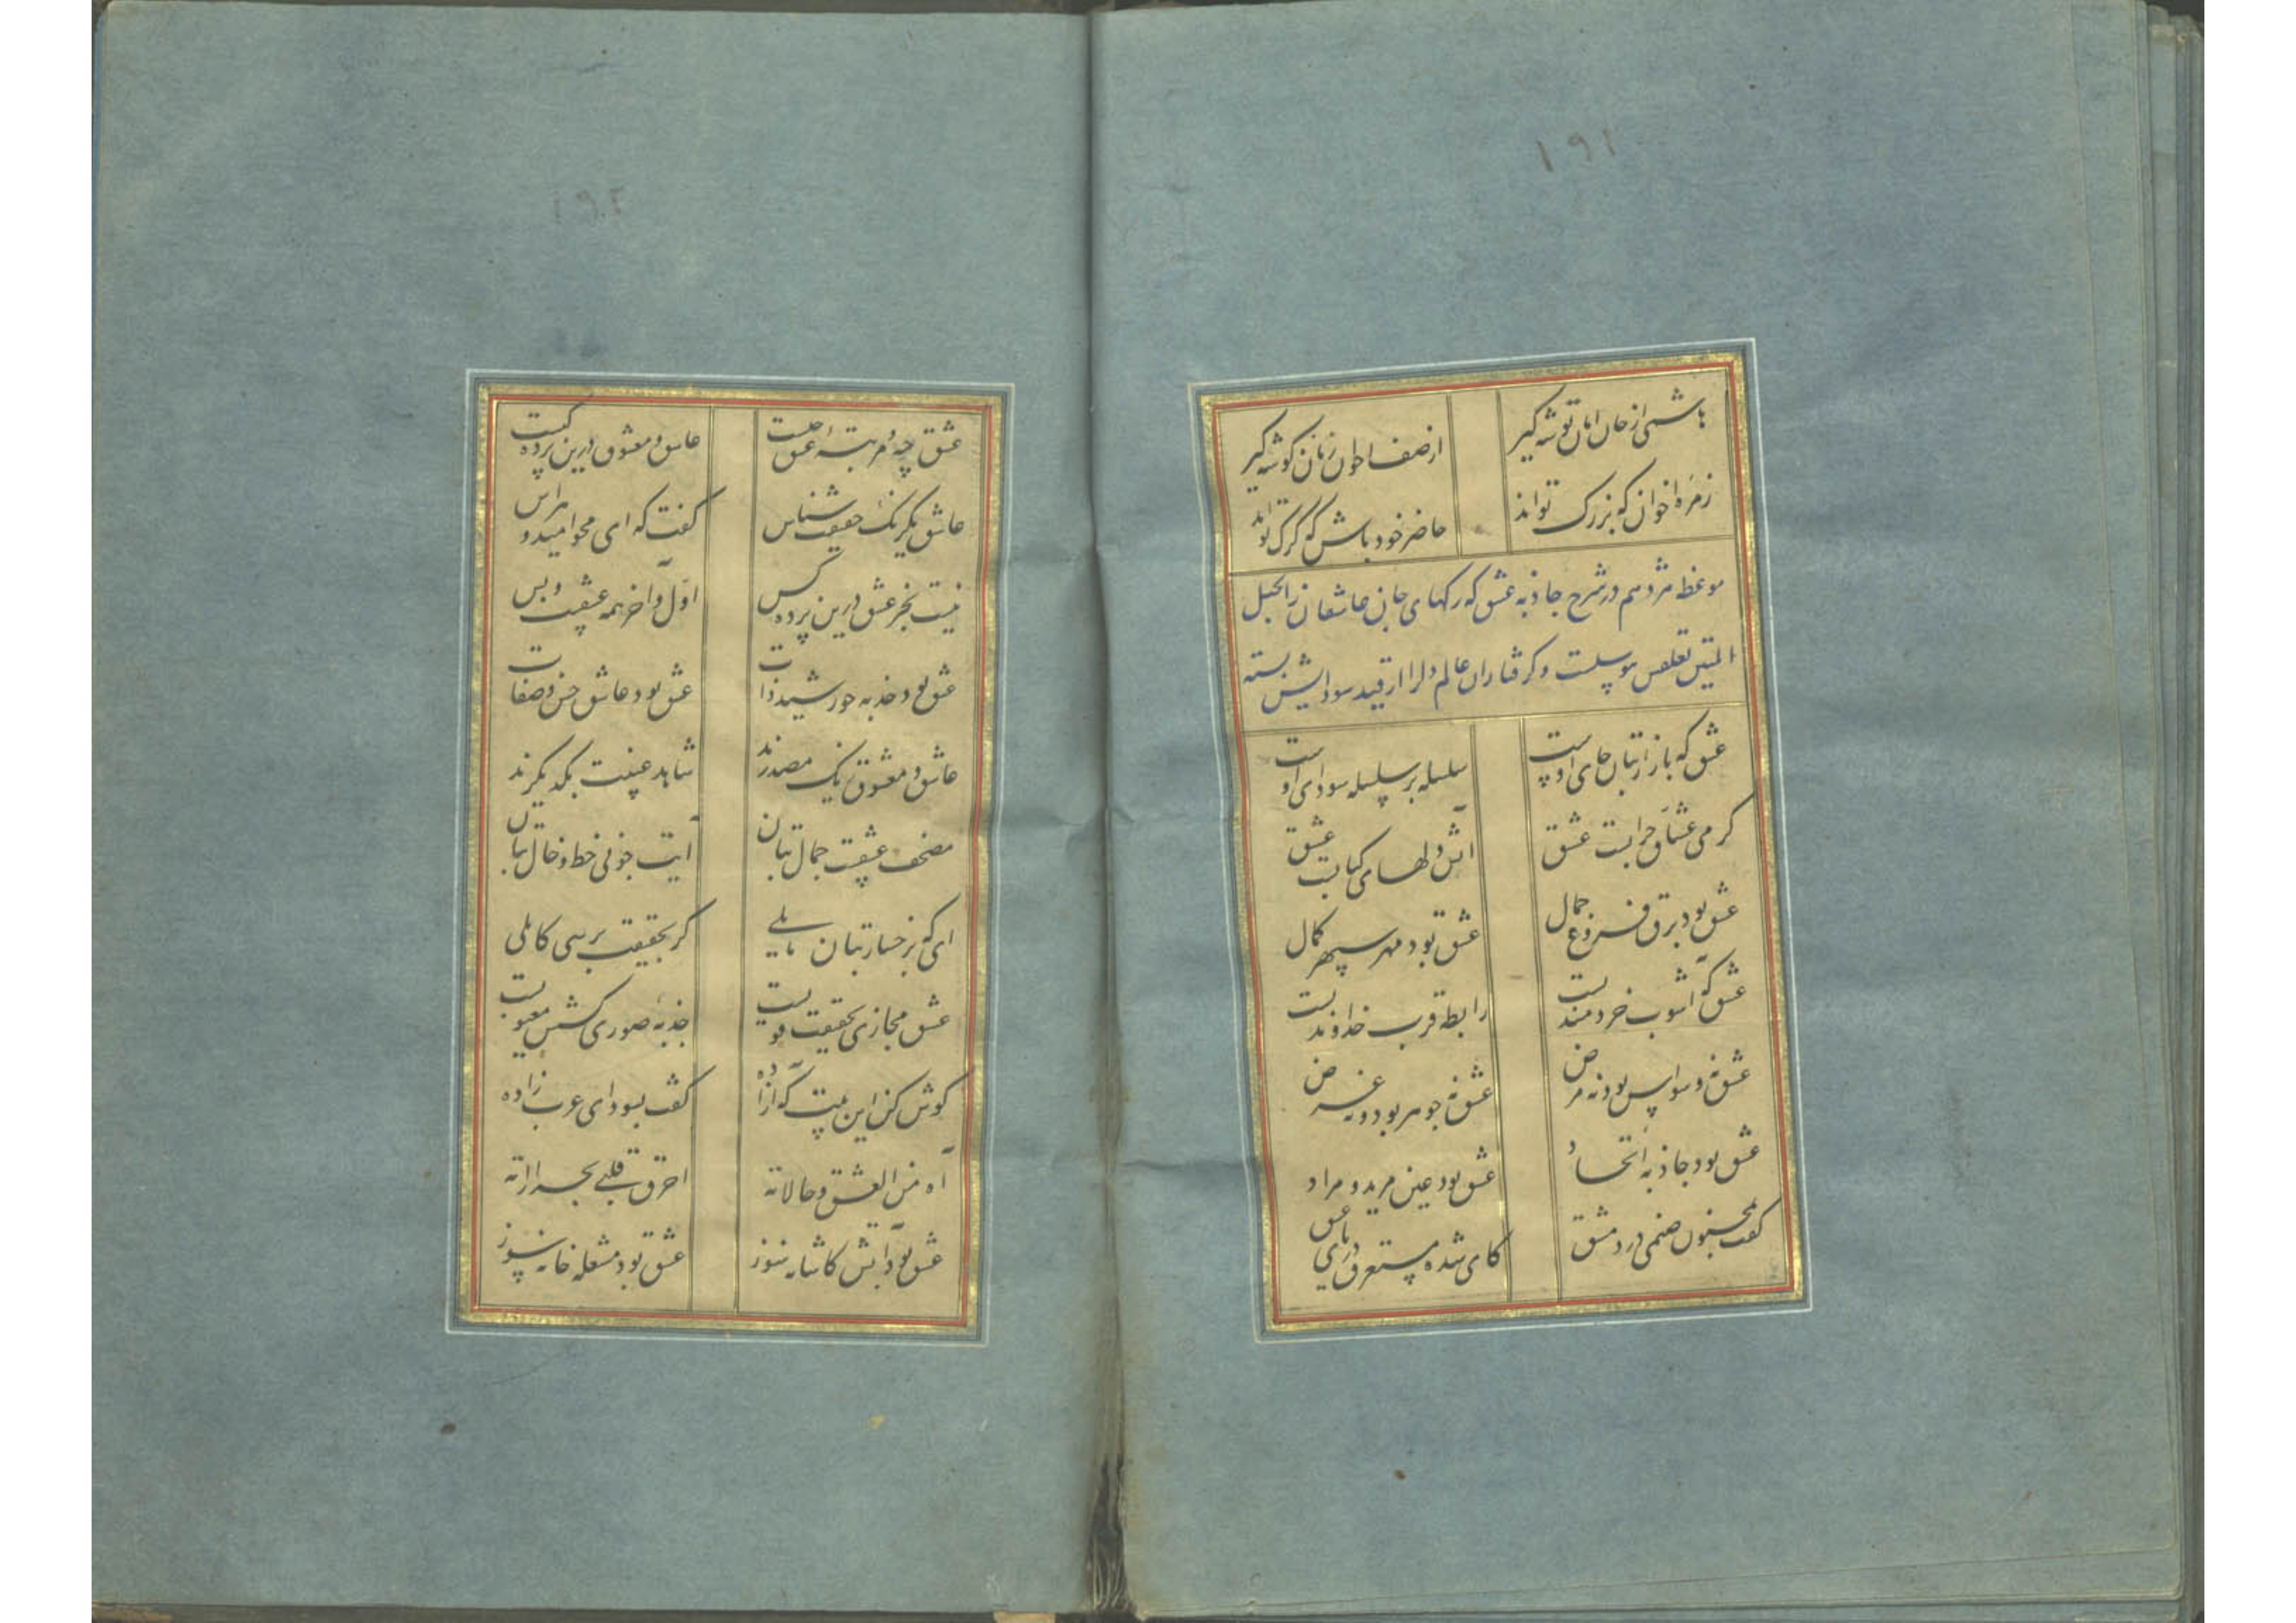 ۱۹۱
باش از خان امان توشه گیر
از صف اخوان زمان گوشه گیر
زمره اخوان که بزرگ تواند
حاضر خود باش که گرگ تواند
موعظه هژدهم در شرح جاذبه عشق که رکهای جان عاشقان را بحبل
المتین تعلقش پیوسلست و گرفتاران عالم دل را از قید سودایش بسته
عشق که بازار بتان جای اوست
سلسله بر سلسله سودای اوست
گرمی عشاق خرابست عشق
آتش دلهای کبابست عشق
عشق بود برق فروغ جمال
عشق بود مهر سپهر کمال
عشق که آشوب خردمندیست
رابطه قرب خداوندیست
عشق نه وسواس بود نه مرض
عشق نه جوهر بود و نه عرض
عشق بود جاذبه اتحاد
عشق بود عین مرید و مراد
گفت بمجنون صنمی در دمشق
کای شده مستغرق دریای عشق
۱۹۲
عشق چه و مرتبه عشق چیست
عاشق و معشوق درین پرده کیست
عاشق یکرنک حقیقت شناس
گفت که ای محو امید و هراس
نیست بجز عشق درین پرده کس
اول و آخر همه عشقست و بس
عشق بود جذبه خورشید ذات
عشق بود عاشق حسن و صفات
عاشق و معشوق یک مصدرند
شاهد عینیت یکدیگرند
مصحف عشقست جمال بتان
آیت خوبی خط و خال بتان
ای که برخسار بتان مایلی
گر بحقیقت برسی کاملی
عشق مجازی بحقیقت قویست
جذبه صوری کشش معنویست
گوش کن این بیت که آزاده
گفت بسودای عرب زاده
آه من العشق و حالاته
احرق قلبی بحراراته
عشق بود آتش کاشانه سوز
عشق بود مشعله خانه سوز